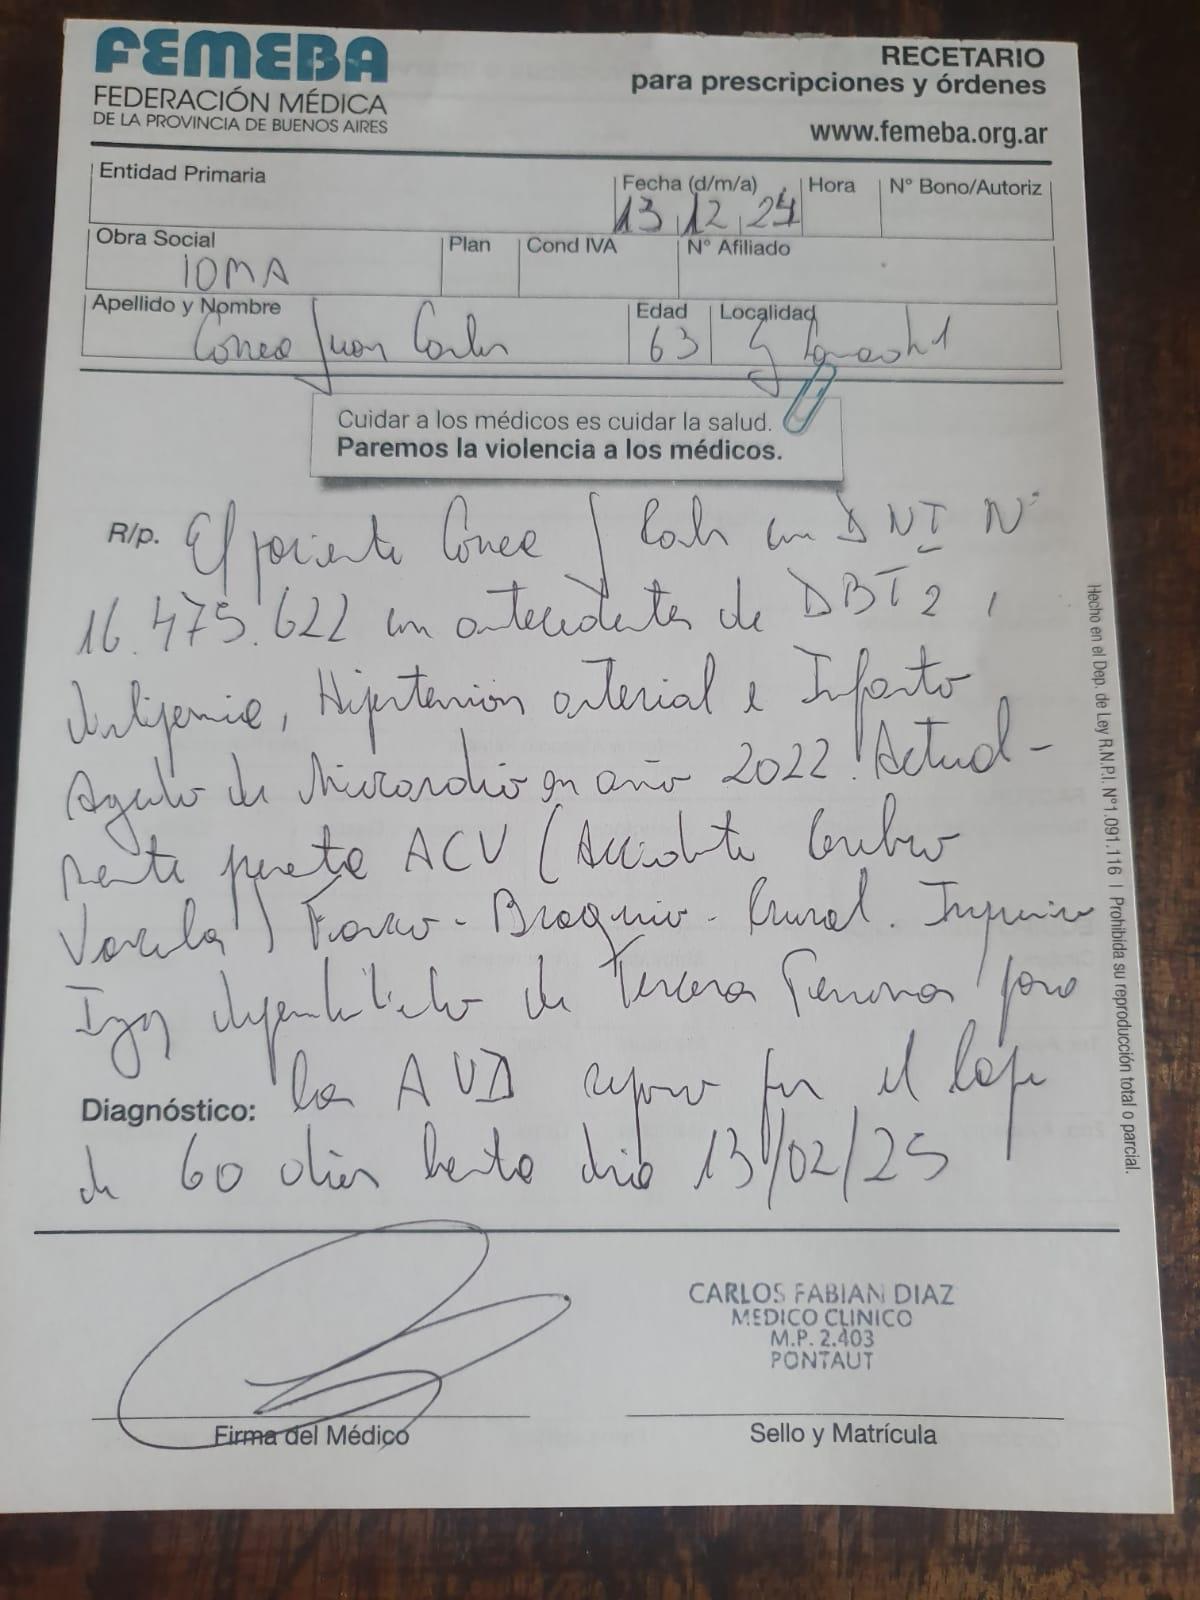 FEMEBA
FEDERACIÓN MÉDICA
DE LA PROVINCIA DE BUENOS AIRES
RECETARIO
para prescripciones y órdenes
www.femeba.org.ar
Entidad Primaria
Fecha (d/m/a) 13 12 24 Hora N° Bono/Autoriz
Obra Social IOMA Plan Cond IVA N° Afiliado
Apellido y Nombre Juan Carlos Edad 63 Localidad
Cuidar a los médicos es cuidar la salud.
Paremos la violencia a los médicos.
R/p. El paciente J Carlos con DNI N°
16.475.622 con antecedentes de DBT2,
Hipertension arterial e Infarto
Agudo de Miocardio en año 2022. Actual-
mente ACV (Accidente Cerebro
Vascular) Facio-Braquio-Crural.
Izq de Tercera Persona para
las AVD reposo por el lapso
Diagnóstico:
de 60 dias hasta dia 13/02/25
Firma del Médico
CARLOS FABIAN DIAZ
MEDICO CLINICO
M.P. 2.403
PONTAUT
Sello y Matrícula
Hecho en el Dep. de Ley R.N.P.I. N°1.091.116 | Prohibida su reproducción total o parcial.